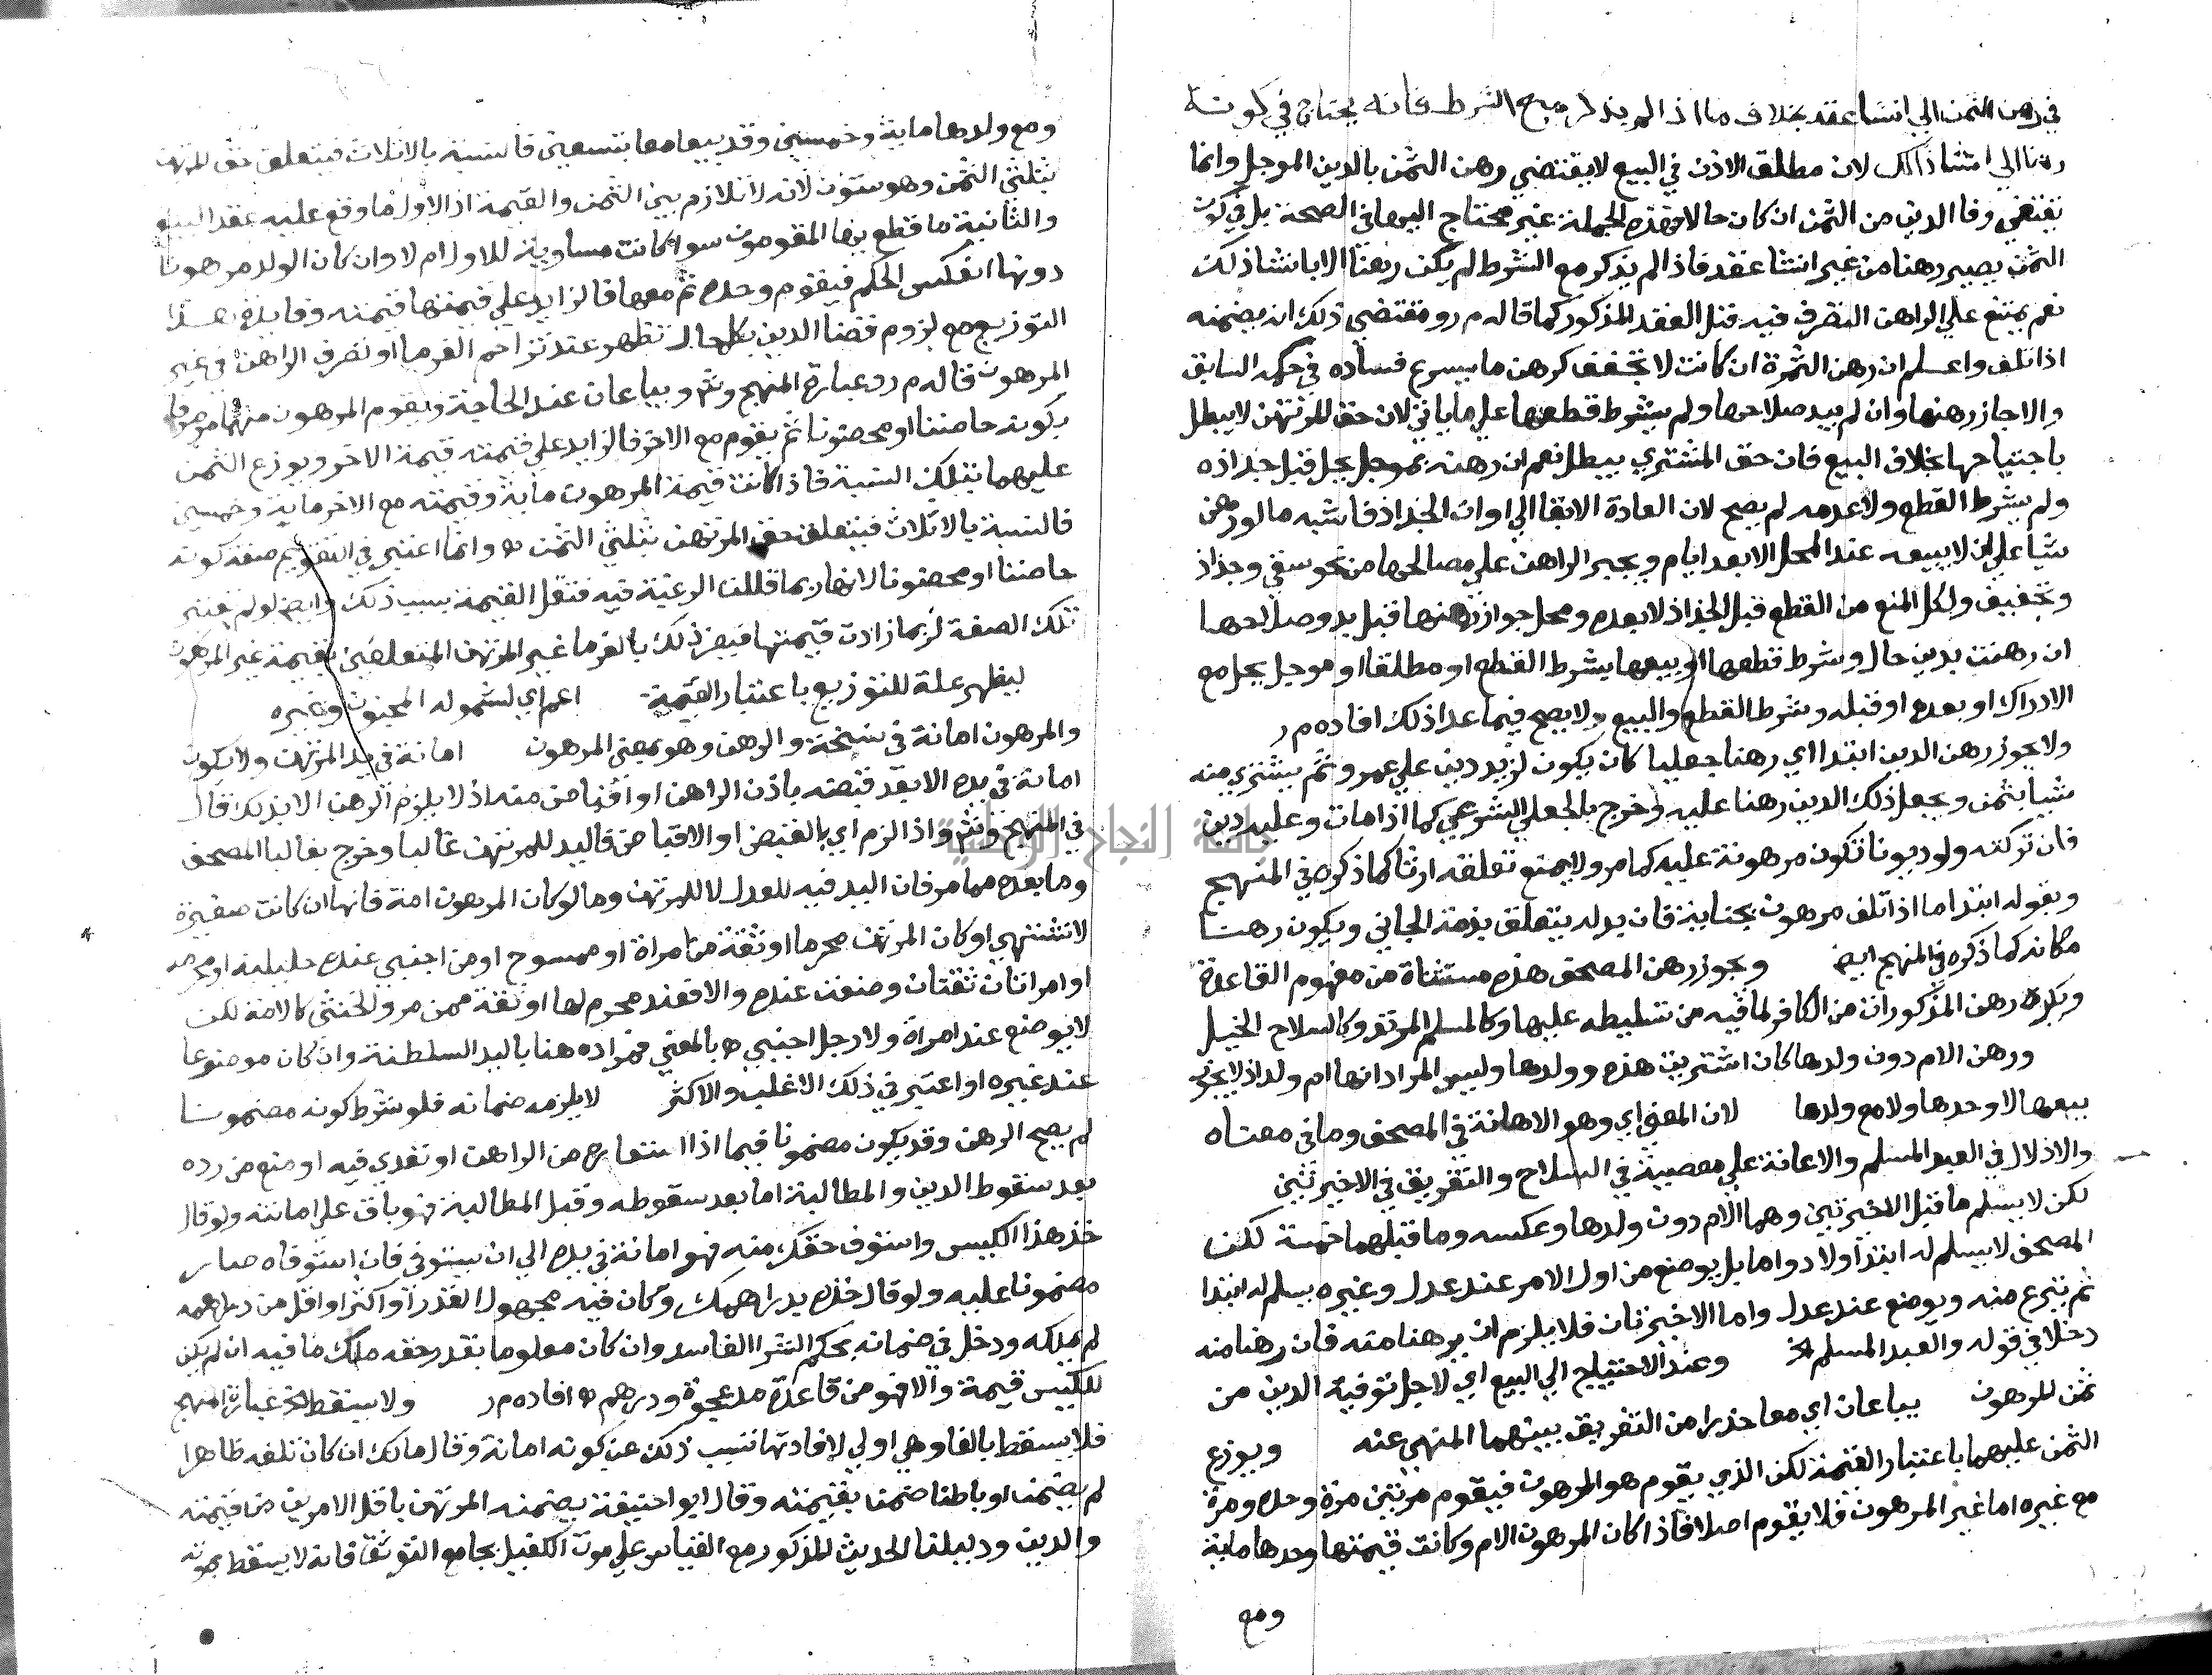 في رهن الثمن الي انشا عقد بخلاف ما اذا لم يذكر مع الشرط فانه يحتاج في كونه
رهنا الي انشا ذالك لان مطلق الاذن في البيع لايقتضي رهن الثمن بالدين الموجل وانما
يقتضي وفا الدين من الثمن ان كان حالا وهذه الجملة غير محتاج اليها في الصحة بل في كون
الثمن يصير رهنا من غير انشا عقد فاذا لم يذكر مع الشرط لم يكن رهنا الا بانشا ذلك
نعم يمتنع علي الراهن التصرف فيه قبل العقد المذكور كما قاله م رو مقتضي ذلك انه يضمنه
اذا تلف واعلم ان رهن الثمرة ان كانت لا تجفف كرهن ما يسرع فساده في حكمه السابق
والاجاز رهنها وان لم يبد صلاحها ولم يشرط قطعها علي ما ياتي لان حق المرتهن لا يبطل
باجتياحها بخلاف البيع فان حق المشتري يبطل نعم ان رهنه بموجل يحل قبل جداده
ولم يشرط القطع ولا عدمه لم يصح لان العادة الابقا الي اوان الجذاذ فاشبه مالو رهن
شيا علي ان لا يبيعه عند المحل الا بعد ايام ويجبر الراهن علي مصالحها من نحو سقي وجذاذ
وتجفيف ولكل المنع من القطع قبل الجذاذ لا بعده ومحل جواز رهنها قبل بدو صلاحها
ان رهنت بدين حال وشرط قطعها او بيعها بشرط القطع او مطلقا او موجل يحل مع
الادراك او بعده او قبله وشرط القطع والبيع ولا يصح فيما عدا ذلك افاده م ر
ولا يجوز رهن الدين ابتدا اي رهنا جعليا كان يكون لزيد دين علي عمرو ثم يشتري منه
شيا بثمن ويجعل ذلك الدين رهنا عليه وخرج بالجعلي الشرعي كما اذا مات وعليه دين
فان تركته ولو ديونا تكون مرهونة عليه كما مر ولا يمنع تعلقه ارثا كما ذكره في المنهج
وبقوله ابتدا ما اذا تلف مرهون بجناية فان بدله يتعلق بذمة الجاني ويكون رهنا
مكانه كما ذكره في المنهج ايضا ويجوز رهن المصحف هذه مستثناة من مفهوم القاعدة
ويكره رهن المذكوران من الكافر لما فيه من تسليطه عليها وكالمسلم المرتد وكالسلاح الخيل
ورهن الام دون ولدها كان اشتريت هذه وولدها وليس المراد انها ام ولد اذ لا يجوز
بيعها لا وحدها ولا مع ولدها لان المعني اي وهو الاهانة في المصحف وما في معناه
والاذلال في العبد المسلم والاعانة علي معصية في السلاح والتفريق في الاخيرتين
لكن لا يسلم ما قبل الاخيرتين وهما الام دون ولدها وعكسه وما قبلهما خمسة لكن
المصحف لا يسلم له ابتدا ولا دواما بل يوضع من اول الامر عند عدل وغيره يسلم له ابتدا
ثم ينزع منه ويوضع عند عدل واما الاخيرتان فلا يلزم ان يرهنا منه فان رهنا منه
دخلا في قوله والعبد المسلم الخ وعند الاحتياج الي البيع اي لاجل توفية الدين من
ثمن المرهون يباعان اي معا حذرا من التفريق بينهما المنهي عنه ويوزع
الثمن عليهما باعتبار القيمة لكن الذي يقوم هو المرهون فيقوم مرتين مرة وحده ومرة
مع غيره اما غير المرهون فلا يقوم اصلا فاذا كان المرهون الام وكانت قيمتها وحدها ماية
ومع
ومع ولدها ماية وخمسين وقد بيعا معا بتسعين فالنسبة بالاثلاث فيتعلق حق المرتهن
بثلثي الثمن وهو ستون لانه لا تلازم بين الثمن والقيمة اذ الاول ما وقع عليه عقد البيع
والثانية ما قطع بها المقومون سوا كانت مساوية للاول ام لا وان كان الولد مرهونا
دونها انعكس الحكم فيقوم وحده ثم معها فالزايد علي قيمتها قيمته وفايدة هذا
التوزيع مع لزوم قضا الدين بكل حال تظهر عند تزاحم الغرما او تصرف الراهن في غير
المرهون قاله م رو عبارة المنهج وش ويباعان عند الحاجة ويقوم المرهون منهما موصوفا
بكونه حاضنا او محضونا ثم يقوم مع الاخر فالزايد علي قيمته قيمة الاخر ويوزع الثمن
عليهما بتلك النسبة فاذا كانت قيمة المرهون ماية وقيمته مع الاخر ماية وخمسين
فالنسبة بالاثلاث فيتعلق حق المرتهن بثلثي الثمن ه وانما اعتبر في التقويم صفة كونه
حاضنا او محضونا لانها ربما قللت الرغبة فيه فتقل القيمة بسبب ذلك وايضا لو لم يعتبر
تلك الصفة لربما زادت قيمتها فيضر ذلك بالغرما غير المرتهن المتعلقين بقيمة غير المرهون
ليظهر علة للتوزيع باعتبار القيمة اعم اي لشموله المجنون وغيره
والمرهون امانة في نسخة والرهن وهو بمعني المرهون امانة في يد المرتهن ولا يكون
امانة في يده الا بعد قبضه باذن الراهن او اقباضه منه اذ لا يلزم الرهن الا بذلك قال
في المنهج وش واذا لزم اي بالقبض او الاقباض فاليد للمرتهن غالبا وخرج بغالبا المصحف
وما بعده مما مر فان اليد فيه للعدل لا للمرتهن وما لو كان المرهون امة فانها ان كانت صغيرة
لا تشتهي او كان المرتهن محرما او ثقة من امراة او ممسوح او من اجنبي عنده حليلته او محرمه
او امراتان ثقتان وضعت عنده والا فعند محرم لها او ثقة ممن مر والخنثي كالامة لكن
لا يوضع عند امراة ولا رجل اجنبي ه بالمعني فمراده هنا باليد السلطنة وان كان موضوعا
عند غيره او اعتبر في ذلك الاغلب والاكثر لا يلزمه ضمانه فلو شرط كونه مضمونا
لم يصح الرهن وقد يكون مضمونا فيما اذا استعاره من الراهن او تعدي فيه او منع من رده
بعد سقوط الدين والمطالبة اما بعد سقوطه وقبل المطالبة فهو باق علي امانته ولو قال
خذ هذا الكيس واستوف حقك منه فهو امانة في يده الي ان يستوفي فان استوفاه صار
مضمونا عليه ولو قال خذه بدراهمك وكان فيه مجهول القدر او اكثر او اقل من دراهمه
لم يملكه ودخل في ضمانه بحكم الشرا الفاسد وان كان معلوما بقدر حقه ملك ما فيه ان لم يكن
للكيس قيمة والا فهو من قاعدة مد عجوة ودرهم ه افاده م ر ولا يسقط الخ عبارة المنهج
فلا يسقط بالفا وهي اولي لافادتها تسبب ذلك عن كونه امانة وقال مالك ان كان تلفه ظاهرا
لم يضمنه او باطنا ضمنه بقيمته وقال ابو حنيفة يضمنه المرتهن باقل الامرين من قيمته
والدين ودليلنا الحديث المذكور مع القياس علي موت الكفيل بجامع التوثق فانه لا يسقط بموته
جامعة النجاح الوطنية